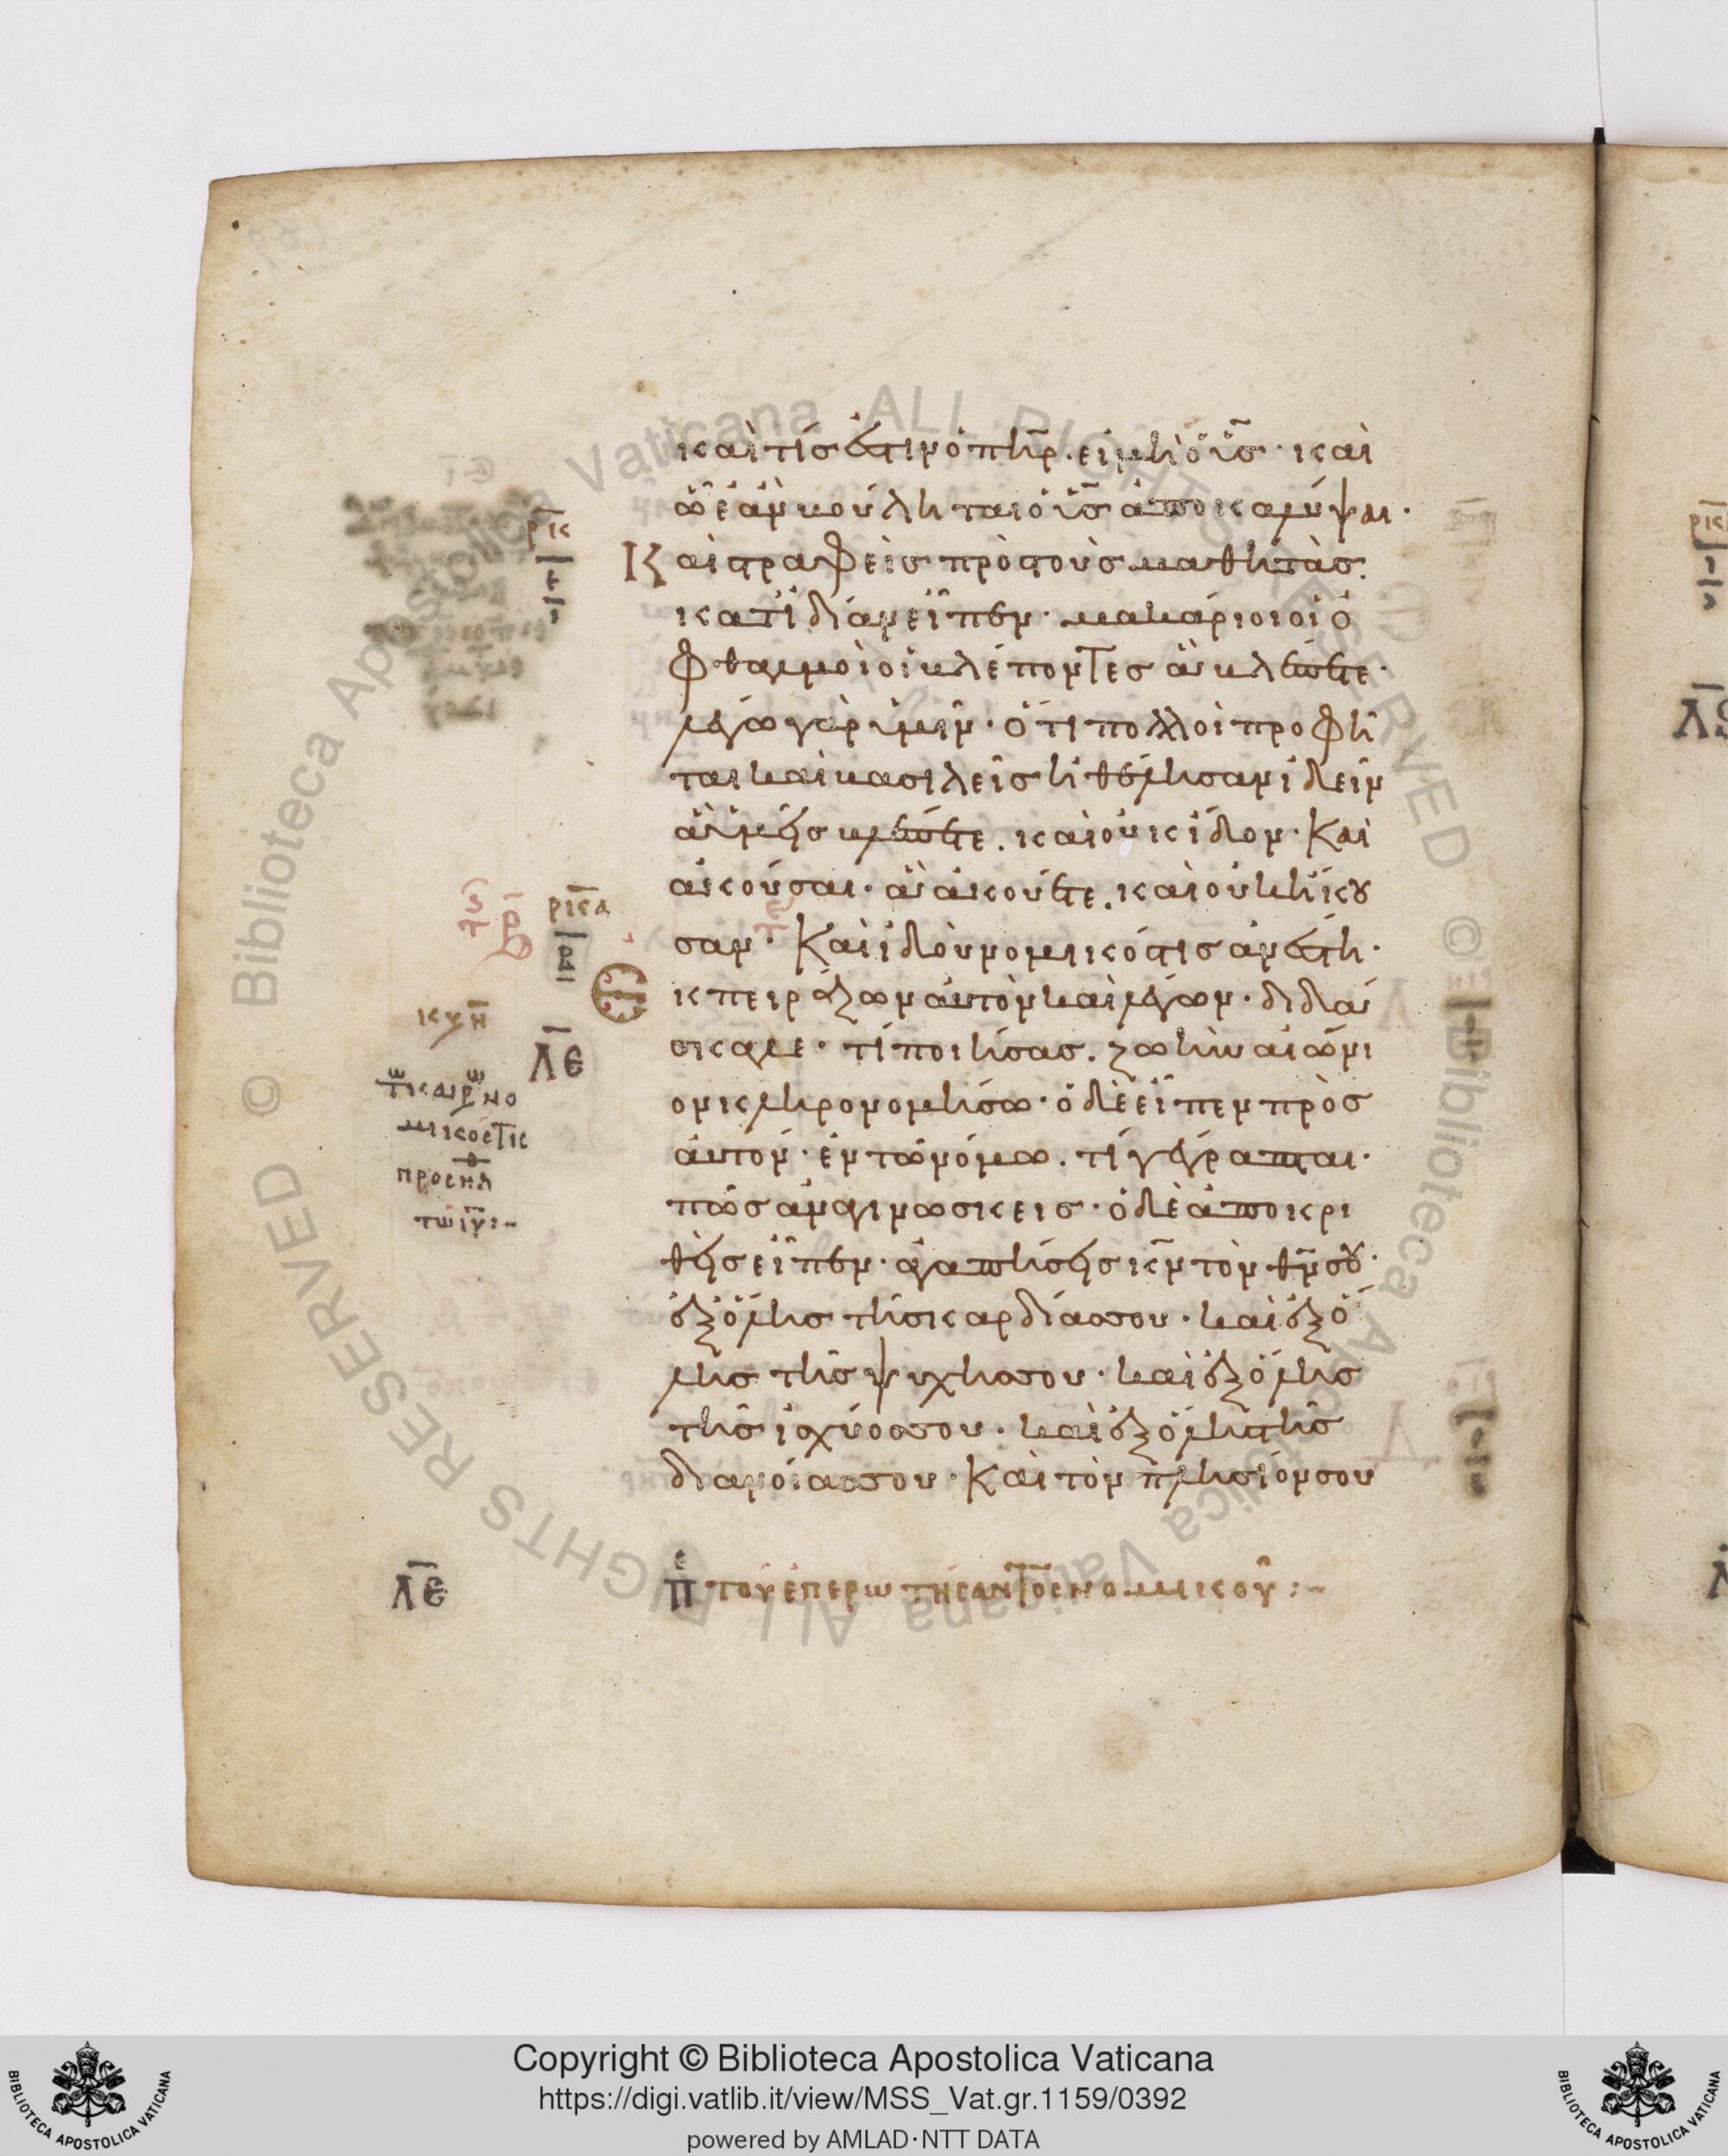 καὶ τίς ἐστιν ὁ πη̅ρ. εἰ μὴ ὁ υι̅σ· καὶ
ὧ ἐὰν βούληται ὁ υι̅σ ἀποκαλύψαι·
Καὶ στραφεὶς πρὸς τοὺς μαθητὰς.
κατ ἰδίαν εἶπεν· μακάριοι οἱ ὀ
φθαλμοὶ οἱ βλέποντες ἃ βλέπετε·
λέγω γὰρ ὑμῖν· ὅτι πολλοὶ προφῆ
ται καὶ βασιλεῖς ἠθέλησαν ἰδεῖν
ἃ ὑμεῖς βλέπετε. καὶ οὐκ ἴδον· Καὶ
ἀκοῦσαι· ἃ ἀκούετε. καὶ οὐκ ἤκου
σαν· Καὶ ἰδοὺ νομικός τις ἀνέστη·
ἐκπειράζων αὐτὸν καὶ λέγων· διδά
σκαλε· τί ποιήσας. ζωὴν αἰώνι
ον κληρονομήσω· ὁ δὲ εἶπεν πρὸς
αὐτόν· ἐν τῶ νόμω. τί γέγραπται·
πῶς ἀναγινώσκεις· ὁ δὲ ἀποκρι
θεὶς εἶπεν· ἀγαπήσεις κ̅ν τὸν θ̅ν σου·
ἐξ ὅλης τῆς καρδίας σου· καὶ ἐξ ὅ
λης τῆς ψυχῆς σου· καὶ ἐξ ὅλης
τῆς ἰσχύος σου· καὶ ἐξ ὅλης τῆς
διανοίας σου· Καὶ τὸν πλησίον σου
ρ̅κ
ι
ρ̅κα
β
λ̅ε
κυ η̅
τω καιρω νο
μικός τις
προσηλθ
τω ι̅υ:~
λ̅ε
πε τοῦ ἐπερωτήσαντος νομικοῦ:~
Copyright © Biblioteca Apostolica Vaticana
https://digi.vatlib.it/view/MSS_Vat.gr.1159/0392
powered by AMLAD·NTT DATA
BIBLIOTECA APOSTOLICA VATICANA
BIBLIOTECA APOSTOLICA VATICANA
© Biblioteca Apostolica Vaticana ALL RIGHTS RESERVED
© Biblioteca Apostolica Vaticana ALL RIGHTS RESERVED